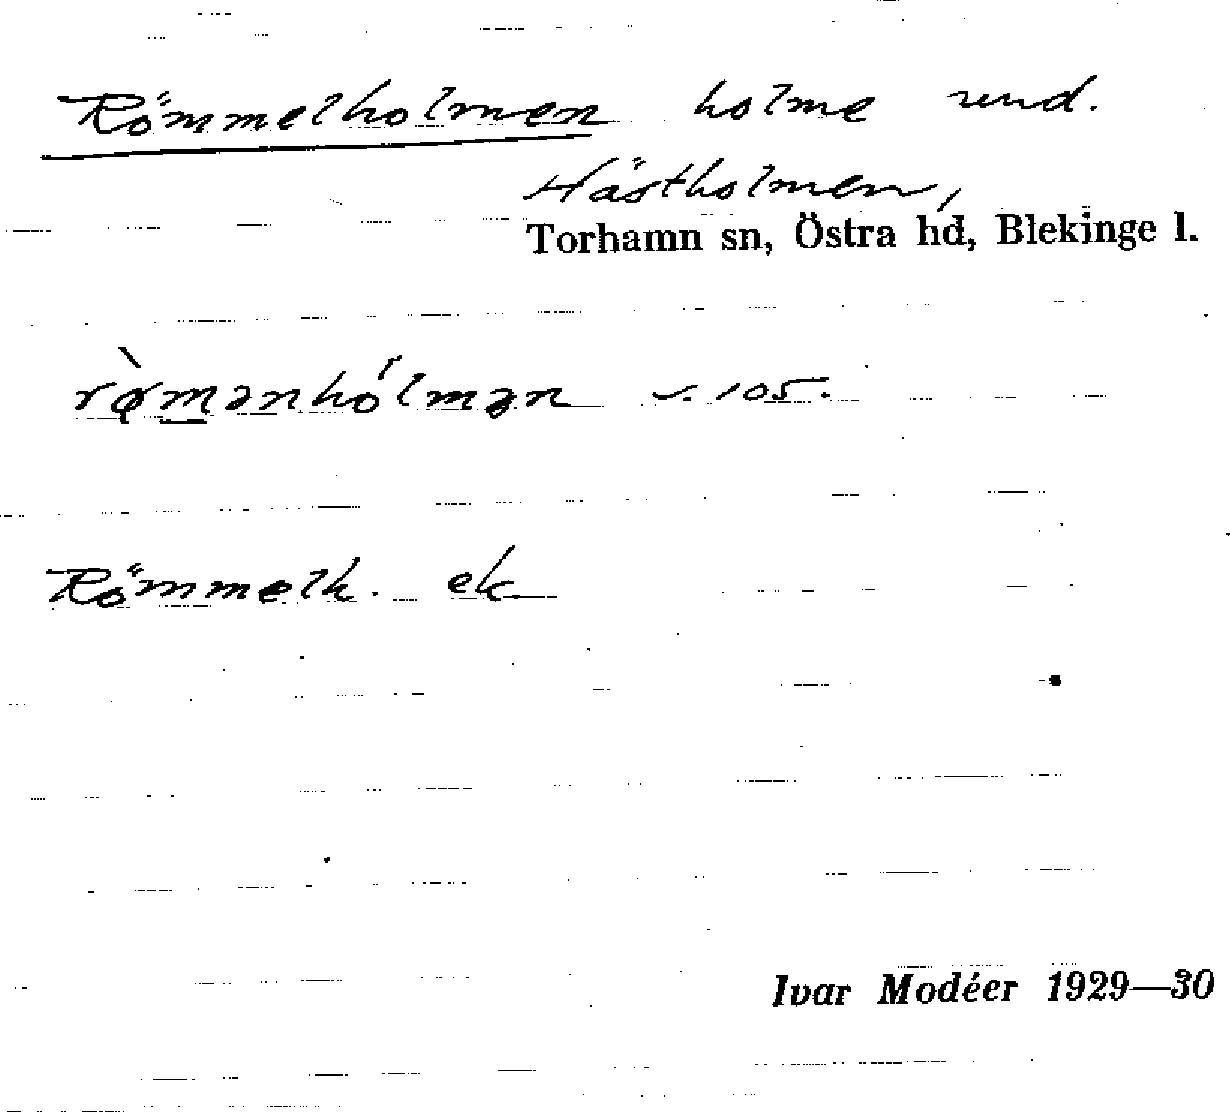 Römmelholmen holme und.
Hästholmen,
Torhamn sn, Östra hd, Blekinge l.
s. 105.
Römmelh. ek
Ivar Modéer 1929—30